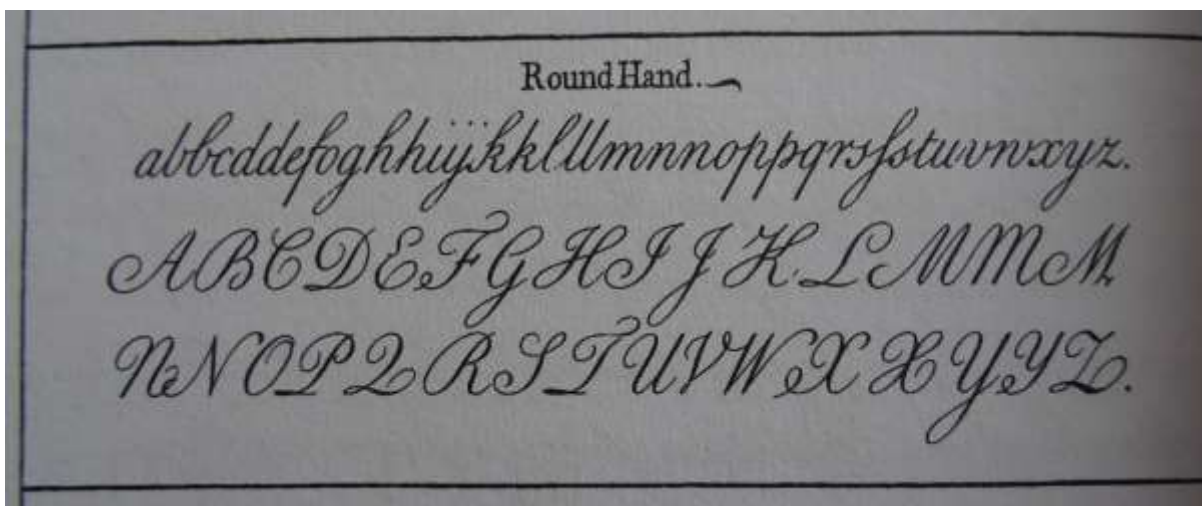 Round Hand.
abbcddefoghhiijkkklllmnnnoppqrsſstuvwxyz.
ABCDEFGHIJKLMMM
NNOPQRSTUVWXXYYZ.